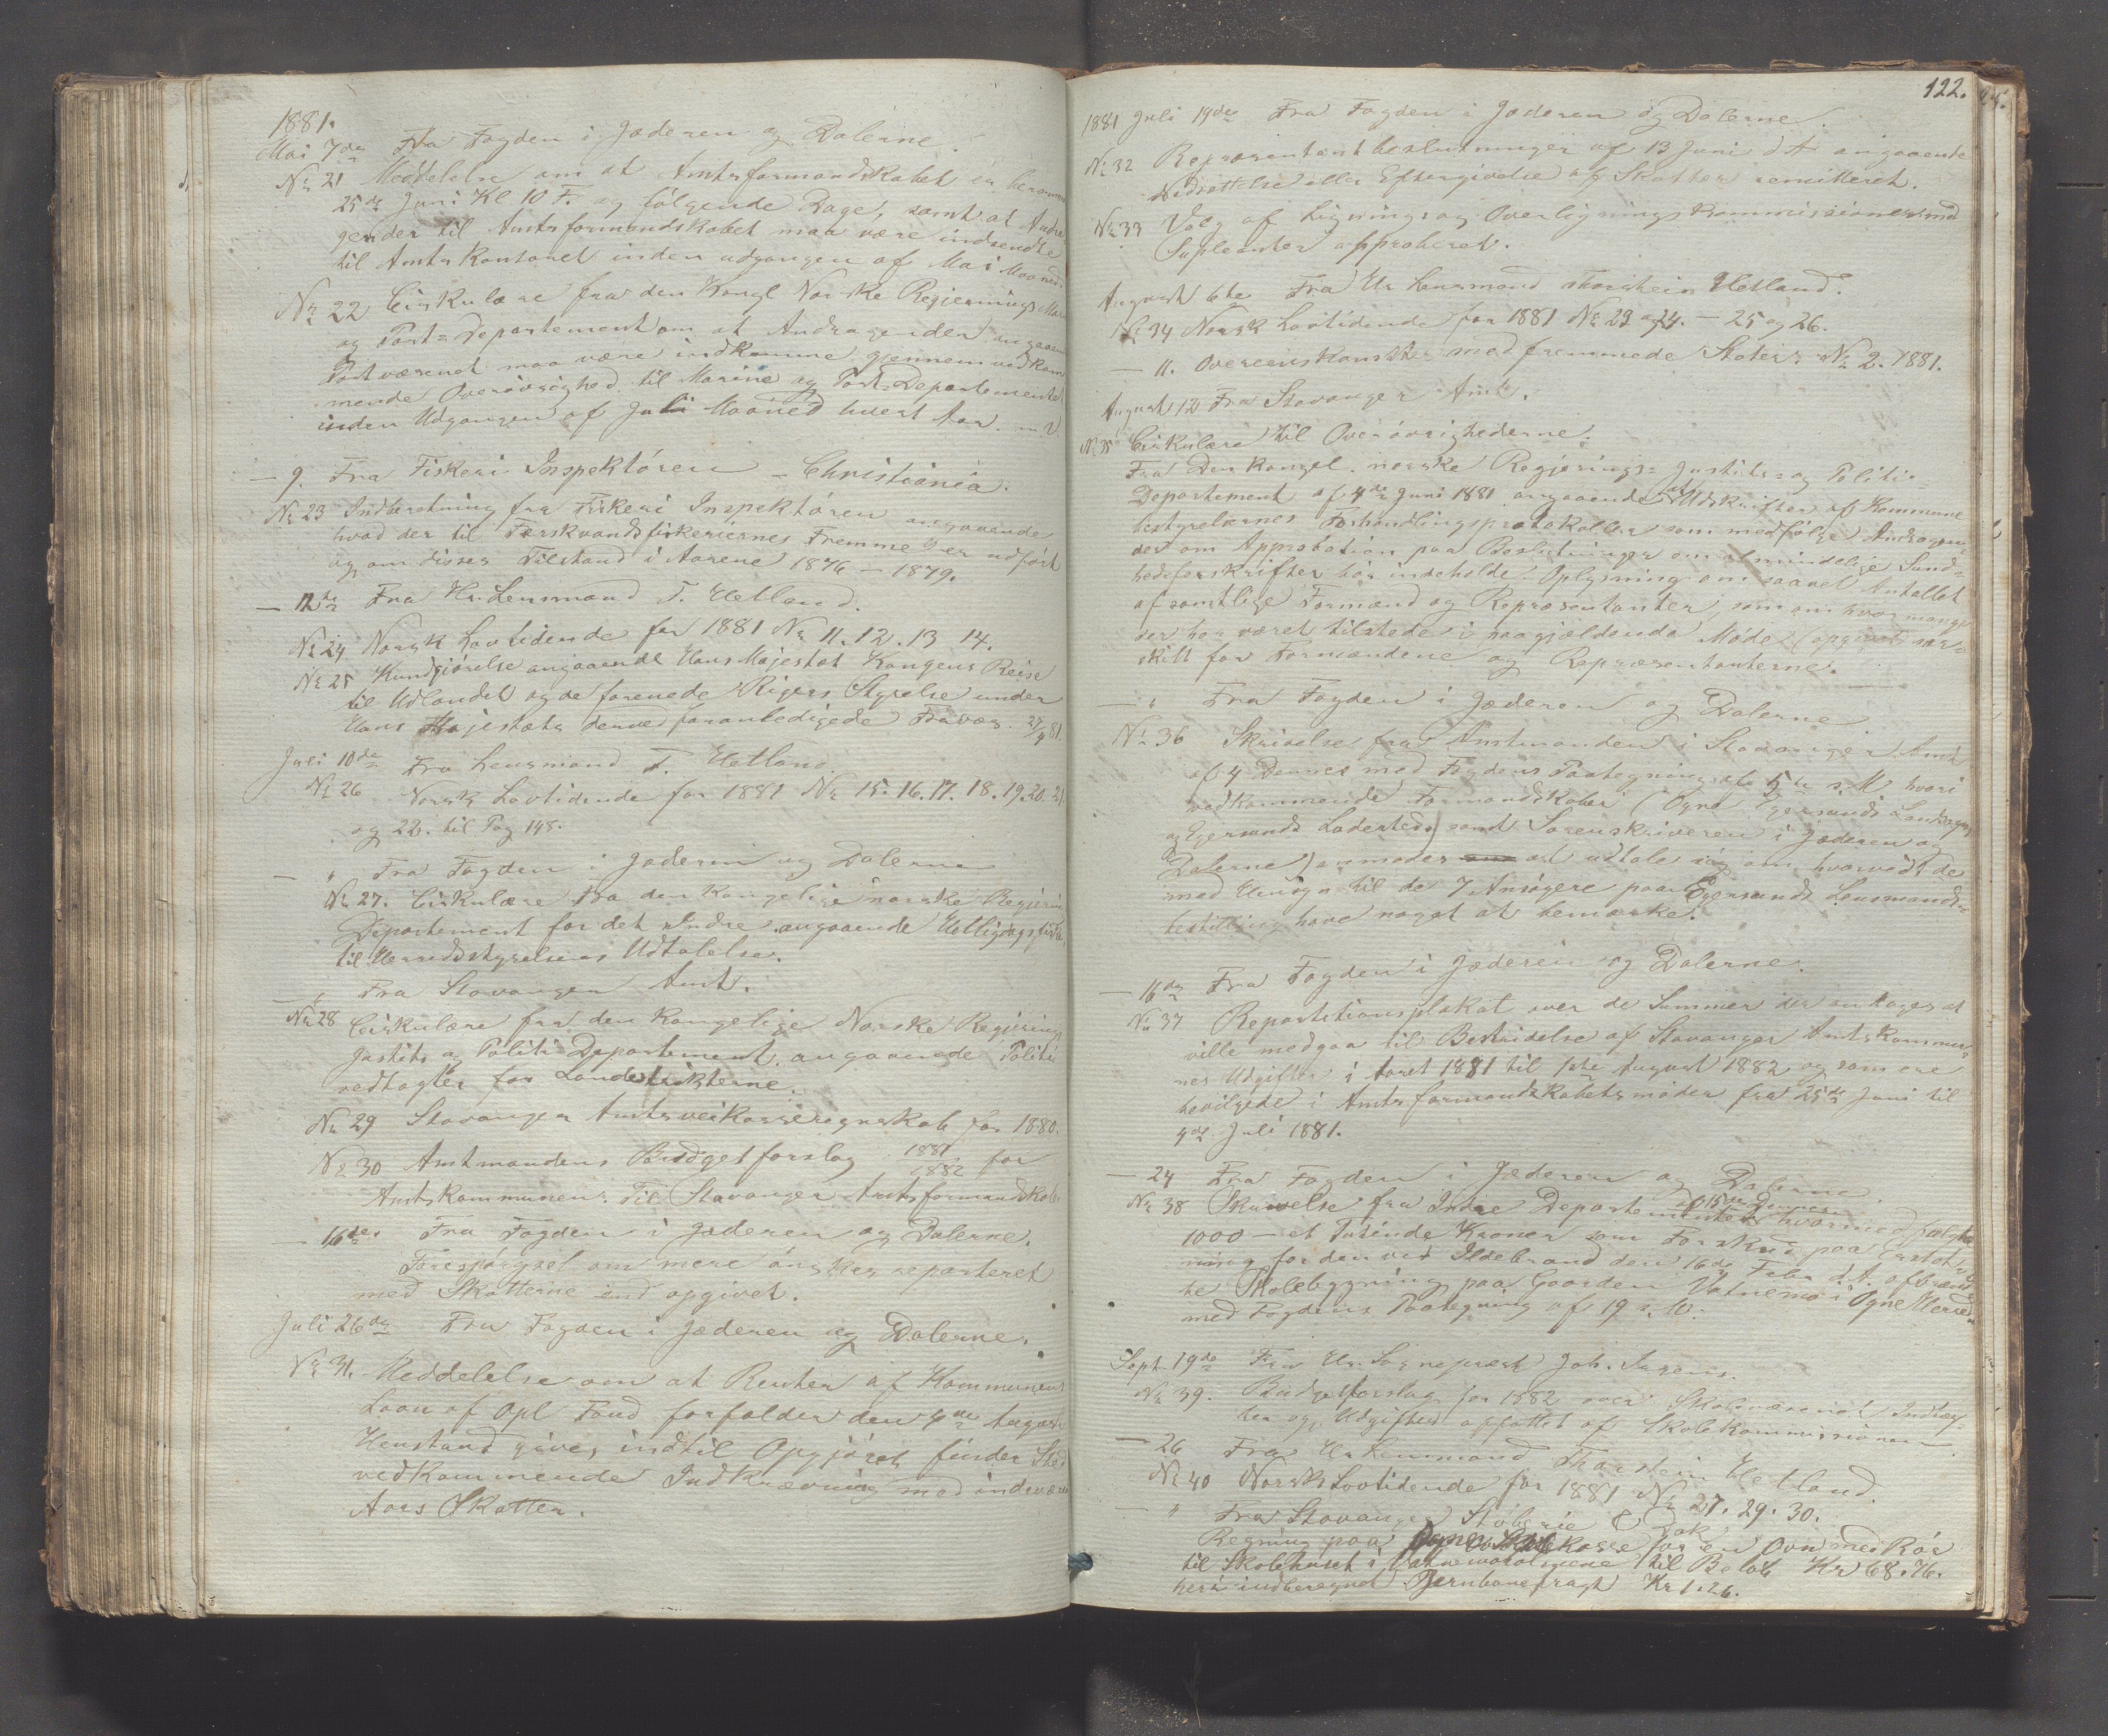 1881.
Mai 7de Fra Fogden i Jæderen og Dalerne.
No 21 Meddelelse om at Amtsformandskabet er beramm
25de Juni Kl 10 F. og følgende Dage, samt at Andra
gender til Amtsformandskabet maa være indsendte
til Amtskontoret inden udgangen af Mai Maaned.
No 22 Cirkulære fra den Kongl Norske Regjerings Mar
og Post-Departement om at Andragender angaaen
Postvæsenet maa være indkomne gjennem vedkom
mende Overøvrighed til Marine og Post-Departementet
inden Udgangen af Juli Maaned hvert Aar.
— 9. Fra Fiskeri Inspektøren – Christiania.
No 23 Indberetning fra Fiskeri Inspektøren angaaende
hvad der til Færskvandsfiskeriernes Fremme er udført
og om disses Tilstand i Aarene 1876 – 1879.
— 12te Fra Hr. Lensmand T. Hetland.
No 24 Norsk Lovtidende for 1881 No 11. 12. 13 14.
No 25 Kundgjørelse angaaende Hans Majestæt Kongens Reise
til Udlandet og de forenede Rigers Styrelse under
Hans Majestæts derved foranledigede Fravær. 27/4 81.
Juli 10de Fra Lensmand T. Hetland
No 26 Norsk Lovtidende for 1881 No 15. 16. 17. 18. 19. 20. 21.
og 22. til Pag 148.
— " Fra Fogden i Jæderen og Dalerne
No 27. Cirkulære fra den kongelige norske Regjerin
Departement for det Indre angaaende Helligdagsfisk
til Herredsstyrelsens Udtalelse.
— " Fra Stavanger Amt.
No 28 Cirkulære fra den kongelige Norske Regjering
Justits og Politi Departement angaaende Politi
vedtagter for Landdistrikterne.
No 29 Stavanger Amtsveikasseregnskab for 1880.
No 30 Amtmandens Budgetforslag 1881/1882 for
Amtskommunen. Til Stavanger Amtsformandskab
— 16de Fra Fogden i Jæderen og Dalerne.
Forespørgsel om mere ønskes reparteret
med Skatterne end opgivet.
Juli 26de Fra Fogden i Jæderen og Dalerne.
No 31. Meddelelse om at Renter af Kommunens
Laan af Opl Fond forfalder den 1ste August
Henstand gives indtil Opgjøret finder Sted
vedkommende Indkrævning med indevær
Aars Skatter.
122.
1881 Juli 19de Fra Fogden i Jæderen og Dalerne.
No 32 Repræsentantbeslutninger af 13 Juni d A angaaende
Nedsættelse eller Eftergivelse af Skatter remitteret.
No 33 Valg af Lignings og Overligningskommissioner med
Supleanter approberet.
August 6te Fra Hr Lensmand Thorstein Hetland.
No 34 Norsk Lovtidende for 1881 No 23 og 24. – 25 og 26.
— 11. Overenskomster med fremmede Stater. No 2. 1881.
August 12 Fra Stavanger Amt.
No 35 Cirkulære til Overøvrighederne.
Fra Den kongel. norske Regjerings- Justits- og Politi-
Departement af 4de Juni 1881 angaaende at Udskrifter af Kommune
bestyrelsernes Forhandlingsprotokoller som medfølge Andragen-
der om Approbation paa Beslutninger om almindelige Sund-
hedsforskrifter bør indeholde Oplysning om saavel Antallet
af samtlige Formænd og Repræsentanter, som om hvor mange
der har været tilstede i paagjældende Møde (opgivet sær-
skilt for Formændene og Repræsentanterne.
— " Fra Fogden i Jæderen og Dalerne
No 36 Skrivelse fra Amtmanden i Stavanger Amt
af 4 Dennes med Fogdens Paategning af 5te s. M. hvori
vedkommende Formandskaber (Ogne Egersunds Landsogn
og Egersunds Ladested) samt Sorenskriveren i Jæderen og
Dalerne) anmodes at udtale sig om hvorvidt de
med Hensyn til de 7 Ansøgere paa Egersunds Lensmands-
bestilling have noget at bemærke.
— 16de Fra Fogden i Jæderen og Dalerne.
No 37 Repartitionsplakat over de Summer der antages at
ville medgaa til Bestridelse af Stavanger Amtskommu-
nes Udgifter i Aaret 1881 til 1ste August 1882 og som ere
bevilgede i Amtsformandskabetsmøder fra 25de Juni til
4de Juli 1881.
— 24 Fra Fogden i Jæderen og Dalerne.
No 38 Skrivelse fra Indre Departementet af 15de Dennes hvormed fulgte
1000 – et Tusinde Kroner som Forskud paa Erstat-
ning for den ved Ildebrand den 16de Febr d. A. afbrænd-
te Skolebygning paa Gaarden Vatnemo i Ogne Herred
med Fogdens Paategning af 19 s. M.
Sept. 19de Fra Hr. Sognepræst Joh.
No 39. Budgetforslag for 1882 over Skolevæsenet Indtæg-
ter og Udgifter opsattet af Skolekommissionen.
— 26 Fra Hr Lensmand Thorstein Hetland.
No 40 Norsk Lovtidende for 1881 No 27. 29. 30.
— " Fra Stavanger Støberie & Dok
Regning paa Ogne Skolekasse for en Ovn med Rør
til Skolehuset i til Beløb Kr 68.76.
heri indberegnet Jernbanefragt Kr 1.26.